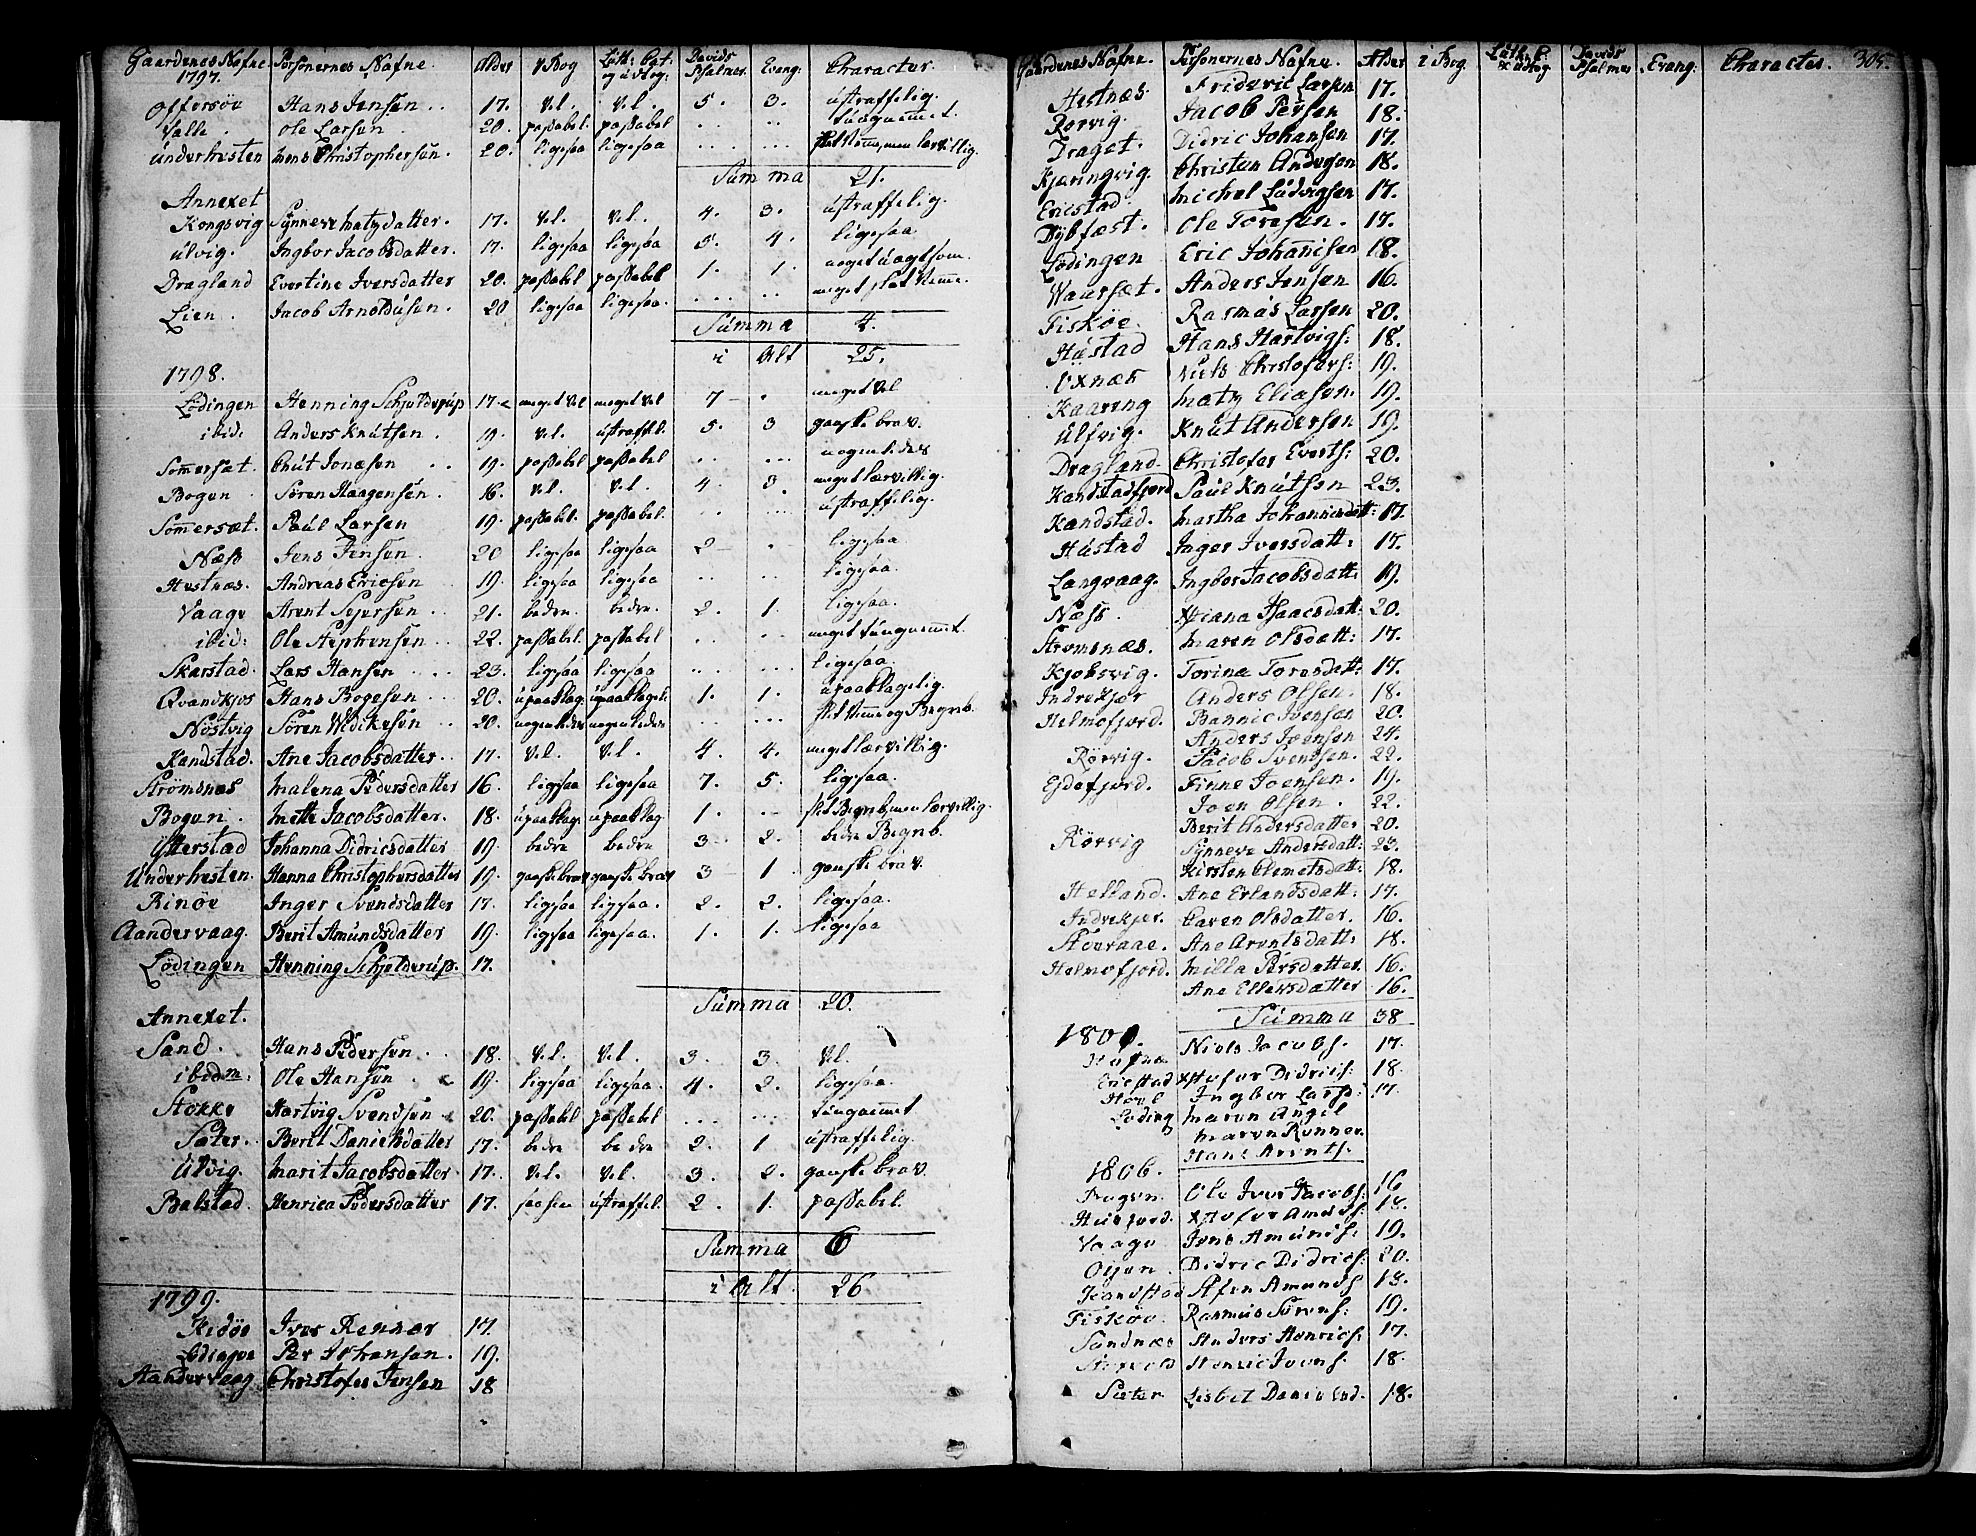 Gaardenes Nafne. Personernes Nafne. Alder i Bog Luth: Cat: og udtog: Davids Psalmer. Evang: Character.
1797.
Offersöe Hans Jensen .. 17. vel. vel. 5. 3. ustraffelig.
Valle. Ole Larsen . 20. passabel. passabel ... .. tungnemmet.
Underhesten Mons Christophersen. 20. ligesaa ligesaa ... ... slet Nemme, men lærvillig.
Summa 21.
Annexet
Kongsvig Synneve Matzdatter. 17. vel. vel. 4. 3. ustraffelig.
Ulvig. Ingbor Jacobsdatter. 17. ligesaa ligesaa 5. 4. ligesaa
Dragland Evertine Iversdatter 20. passabel passabel 1. 1. noget uagtsom.
Lien. Jacob Arnoldusen. 20 ligesaa ligesaa. ... .. meget slet Nemme.
Summa 4.
i Alt 25.
1798.
Lödingen Henning Schjelderup 17 meget vel meget vel 7 . meget vel
ibid. Anders Knutsen . 19. vel. ustraffel. 5. 3 ganske brav.
Sommersæt. Knut Jonæsen .. 19. passabel passabel .. ... nogenledes
Bogen . Sören Haagensen. 16. vel. vel. 4. 3. meget lærvillig.
Sommersæt. Paul Larsen 19. passabel. passabel. .. ... ustraffelig.
Næss Jens Jensen. 20 ligesaa ligesaa 2 . ligesaa.
Hestnæs. Andreas Ericsen . 19. ligesaa ligesaa .. ... ligesaa.
Vaage Arent Sejersen .. 21. bedre. bedre. 2. 1. ligesaa.
ibid: Ole Stephensen .. 22. passabel. passabel . ... meget tungnemmet.
Skarstad. Lars Hansen ... 23. ligesaa ligesaa .. ... ligesaa.
Qvandkjos Hans Bogesen .. 20. upaaklag. upaaklageli. 1. 1. upaaklagelig.
Nöstvig Sören Wedikesen .. 20. nogenledes nogenledes ... ... slet Nemme og Begreb.
Kandstad. Ane Jacobsdatter. 17. vel. vel. 4. 4. meget lærvillig.
Strömsnæs Malena Pedersdatter 16. ligesaa ligesaa 7. 5. ligesaa.
Bogen. Mette Jacobsdatter. 18. upaaklag: upaaklag 1. .. slet Begreb, men lærvillig.
Ytterstad Johanna Didricsdatter 19. bedre bedre 3 2. bedre Begreb.
Underhesten. Hanna Christophersdatter 19. ganske brav ganske brav 3 1 ganske brav.
Rinöe Inger Svendsdatter 17. ligesaa ligesaa. 2. 2. ligesaa.
Aandervaag. Berit Amundsdatter 19. ligesaa ligesaa. 1. 1. ligesaa
Lödingen Henning Schjelderup. 17.
Summa 20.
Annexet.
Sand. Hans Pedersen .. 18. vel. vel. 3. 3. vel.
ibidm: Ole Hansen . 19. ligesaa ligesaa. 4. 2. ligesaa.
Stokke Hartvig Svendsen 20. passabel passabel ... ... tungnemmet
Sæter. Berit Danielsdatter 17. bedre bedre 2. 1. ustraffelig.
Ulvig. Marit Jacobsdatter 17. vel. vel. 3. 2. ganske brav.
Balstad. Henrica Pedersdatter 17. saasom ustraffel. 2. 1. passabel.
Summa 6
i Alt. 26
1799.
Kidöe Iver Rennær 17.
Lödingen Per Johansen. 19.
Aandervaag Christofer Jensen 18
Gaardenes Nafne. Personernes Nafne. Alder i Bog. Luth. C. & udtog Davids Psalmer Evang: Character. 305.
Hestnæs Frideric Larsen 17.
Rörvig. Jacob Persen 18.
Draget. Didric Johansen 17.
Kjæringvig. Christen Anderson 18.
Ericstad. Michel Ludvigsen 17.
Dybfæst. Ole Toresen. 17.
Lödingen Eric Johannisen 18.
Waarsæt. Anders Jensen 16.
Fiskøe. Rasmus Larsen 20.
Hustad Hans Hartvigs: 18.
Öxnæs Niels Christofers: 19.
Kaaring Matz Eliasen. 19.
Ulfvig. Knut Andersen 19.
Dragland. Christofer Everts: 20.
Kandstadfjord Paul Knutsen 23.
Kandstad. Martha Johannesdatt: 17.
Hustad Inger Iversdatt: 17.
Langvaag. Ingbor Jacobsdatt: 19.
Næss. Xtiana Isaacsdatt: 20.
Strömsnæs. Maren Olsdatt: 17.
Kjobsvig. Torina Toresdatt: 17.
Indrekjær Anders Olsen. 18.
Helmofjord. Bannic Ivensen 20.
Anders Joensen 24.
Rörvig. Jacob Svendsen. 22.
Ejdefjord. Finne Joensen. 19.
Joen Olsen. 22.
Berit Andersdatter 20.
Rörvig Synneve Andersdatt: 23.
Kirsten Clemetsdatt: 18.
Helland. Ane Erlandsdatt: 17.
Indrekjer. Caren Olsdatter. 16.
Storraae. Ane Arentsdatt: 18.
Helmofjord. Milla Persdatter. 16.
Ane Ellersdatter 16.
Summa 38
1801.
Niels Jacobs. 17.
Ericstad Xstofer Didrics: 18.
Ingbor Lars: 17.
Loding Maren Angel
Maren Renner
Hans Arents.
1806.
Ole Iver Jacobs: 16
Xstofer Amunds: 18.
Vaage Jens Amunds: 19.
Didric Didrics: 20.
Kandstad Amunds 18.
Fiskøe Rasmus Sörens: 19.
Sandnæs Anders Henrics: 17.
Henric Joens. 18.
Sæter Lisbet Daniels d. 18.